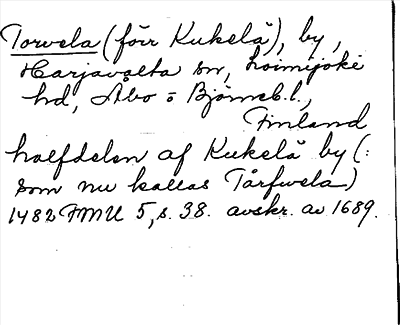 Torvela (förr Kukelä), by,
Harjavalta sn, Loimijoki
hd, Åbo o Björneb. l.,
Finland
halfdelen af Kukelä by (:
som nu kallas Tårfwela)
1482 FMU 5, s. 38. avskr. av 1689.